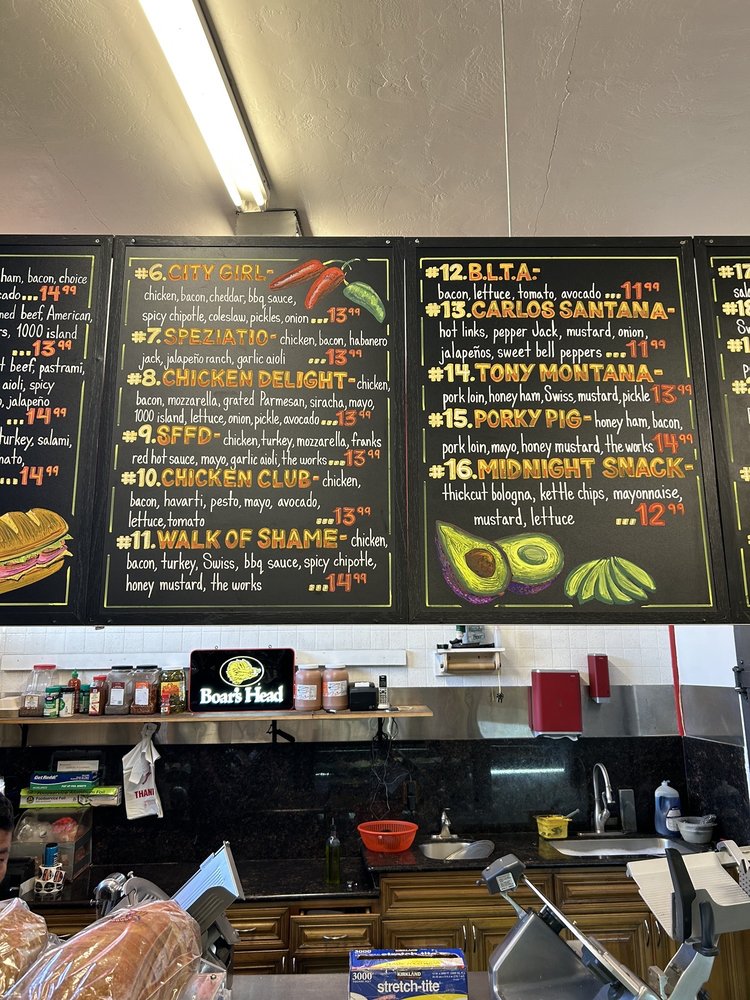 ham, bacon, choice
...14.99
American,
1000 island
...13.99
pastrami,
aioli, spicy
jalapeño
...14.99
turkey, salami,
...14.99
#6. CITY GIRL-
chicken, bacon, cheddar, bbq sauce,
spicy chipotle, coleslaw, pickles, onion ...13.99
#7. SPEZIATIO- chicken, bacon, habanero
jack, jalapeño ranch, garlic aioli ...13.99
#8. CHICKEN DELIGHT- chicken,
bacon, mozzarella, grated Parmesan, siracha, mayo,
1000 island, lettuce, onion, pickle, avocado...13.99
#9. SFFD- chicken, turkey, mozzarella, franks
red hot sauce, mayo, garlic aioli, the works...13.99
#10. CHICKEN CLUB- chicken,
bacon, havarti, pesto, mayo, avocado,
lettuce, tomato ...13.99
#11. WALK OF SHAME- chicken,
bacon, turkey, Swiss, bbq sauce, spicy chipotle,
honey mustard, the works ...14.99
#12. B.L.T.A.-
bacon, lettuce, tomato, avocado ...11.99
#13. CARLOS SANTANA-
hot links, pepper Jack, mustard, onion,
jalapeños, sweet bell peppers ...11.99
#14. TONY MONTANA-
pork loin, honey ham, Swiss, mustard, pickle 13.99
#15. PORKY PIG- honey ham, bacon,
pork loin, mayo, honey mustard, the works 14.99
#16. MIDNIGHT SNACK-
thickcut bologna, kettle chips, mayonnaise,
mustard, lettuce ...12.99
#17
#18
Boar's Head
THAN
3000 KIRKLAND 3000
stretch-tite